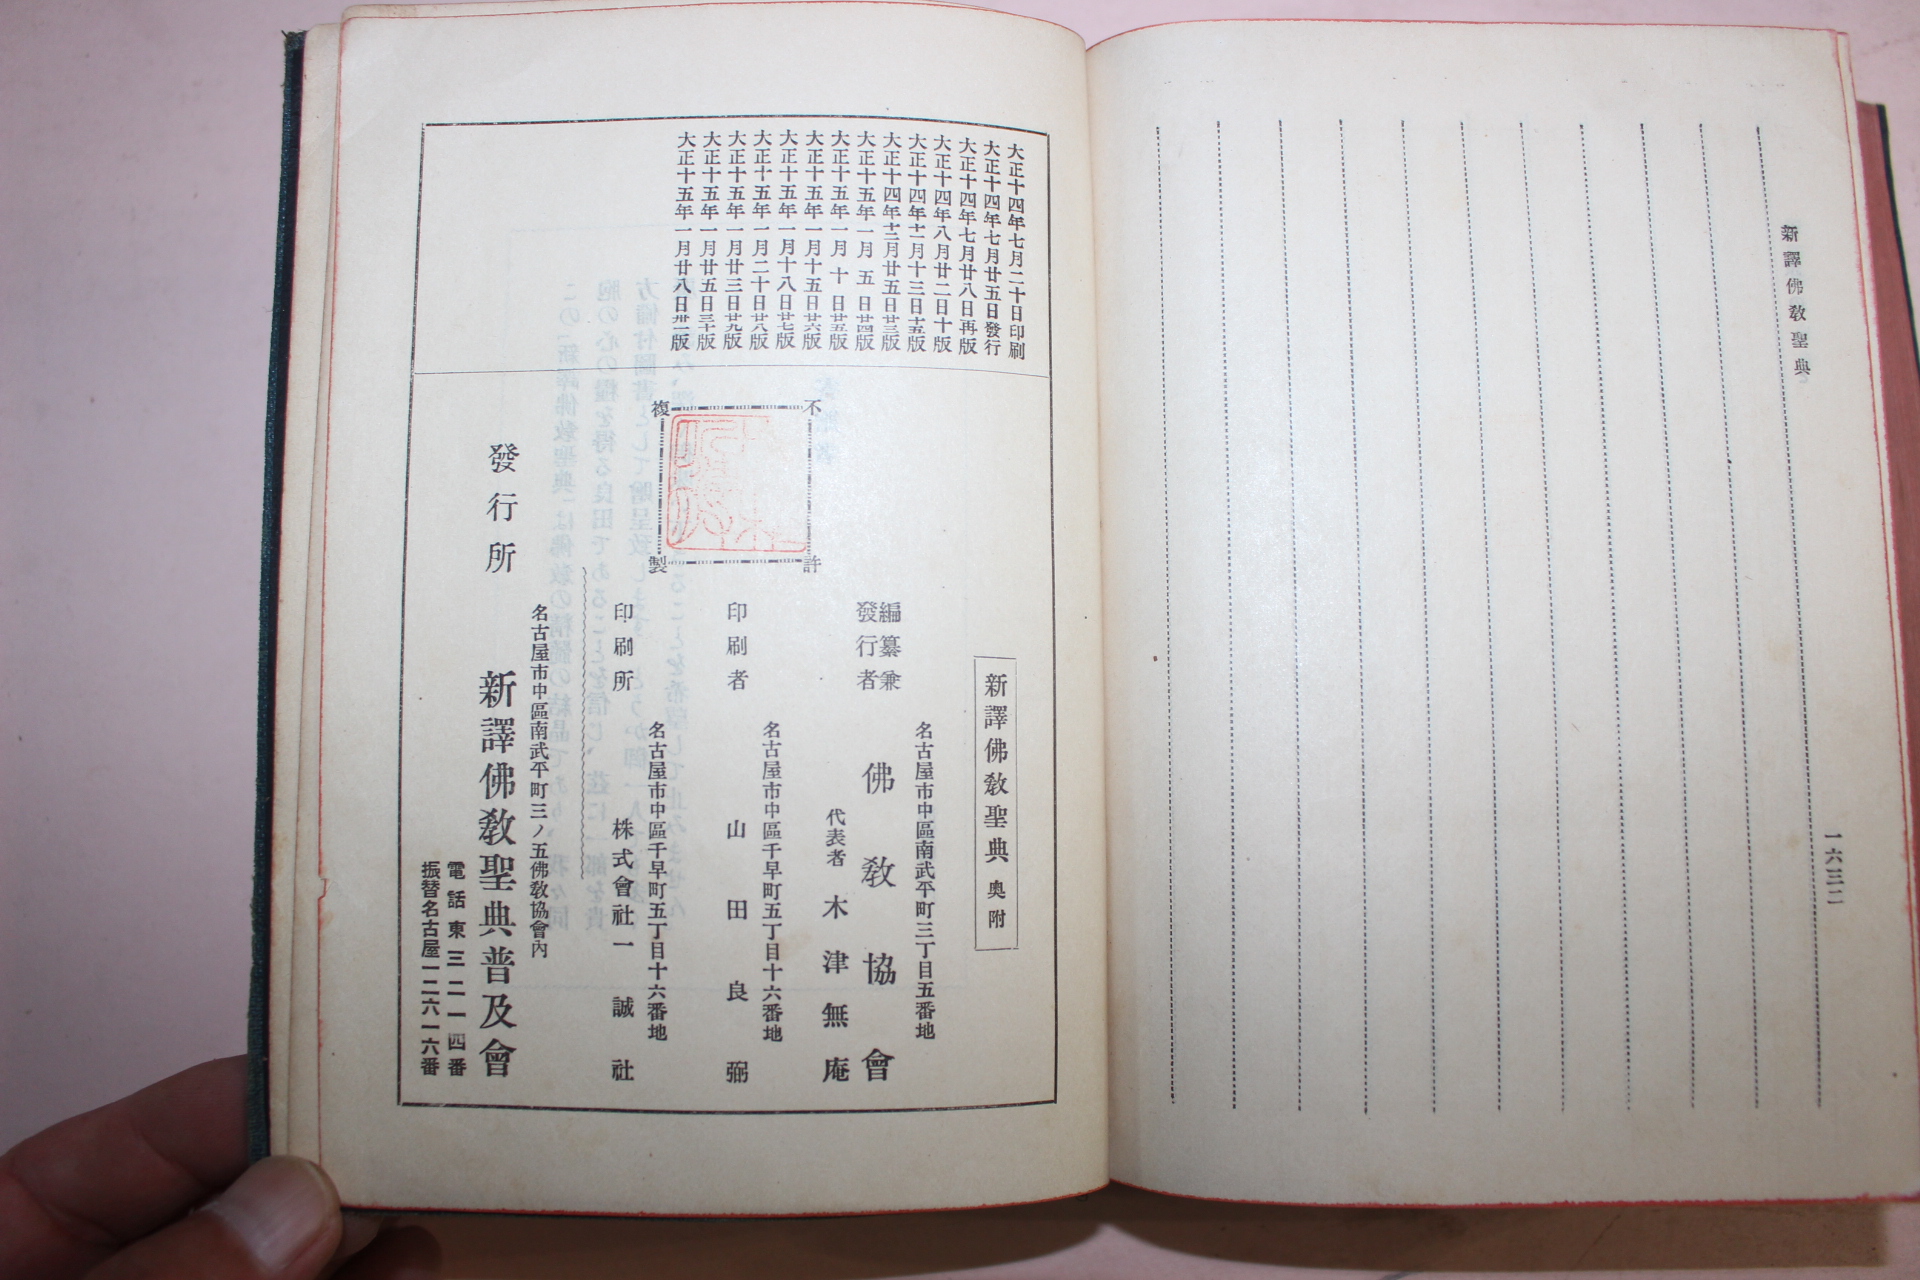 新譯佛教聖典
一六三二
大正十四年七月二十日印刷
大正十四年七月廿五日發行
大正十四年七月廿八日再版
大正十四年八月廿二日十版
大正十四年十一月十三日十五版
大正十四年十二月廿五日廿三版
大正十五年一月五日廿四版
大正十五年一月十日廿五版
大正十五年一月十五日廿六版
大正十五年一月十八日廿七版
大正十五年一月二十日廿八版
大正十五年一月廿三日廿九版
大正十五年一月廿五日三十版
大正十五年一月廿八日卅一版
不許複製
新譯佛教聖典 奥附
名古屋市中區南武平町三丁目五番地
編纂兼發行者 佛教協會
代表者 木津無庵
名古屋市中區千早町五丁目十六番地
印刷者 山田良弼
名古屋市中區千早町五丁目十六番地
印刷所 株式會社一誠社
名古屋市中區南武平町三ノ五佛教協會內
發行所 新譯佛教聖典普及會
電話東三二一四番
振替名古屋一二六一六番